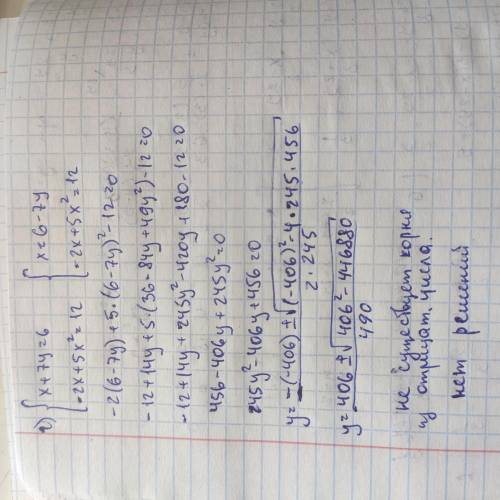 г) { x+7y=6 { x=6-7y
{ -2x+5x²=12 { -2x+5x²=12
-2(6-7y)+5·(6-7y)²-12=0
-12+14y+5·(36-84y+49y²)-12=0
-12+14y+245y²-420y+180-12=0
456-406y+245y²=0
245y²-406y+456=0
y=-(-406)±√(-406)²-4·245·456
2·245
y=406±√406²-446880
490
не существует корня
из отрицат. числа.
нет решений